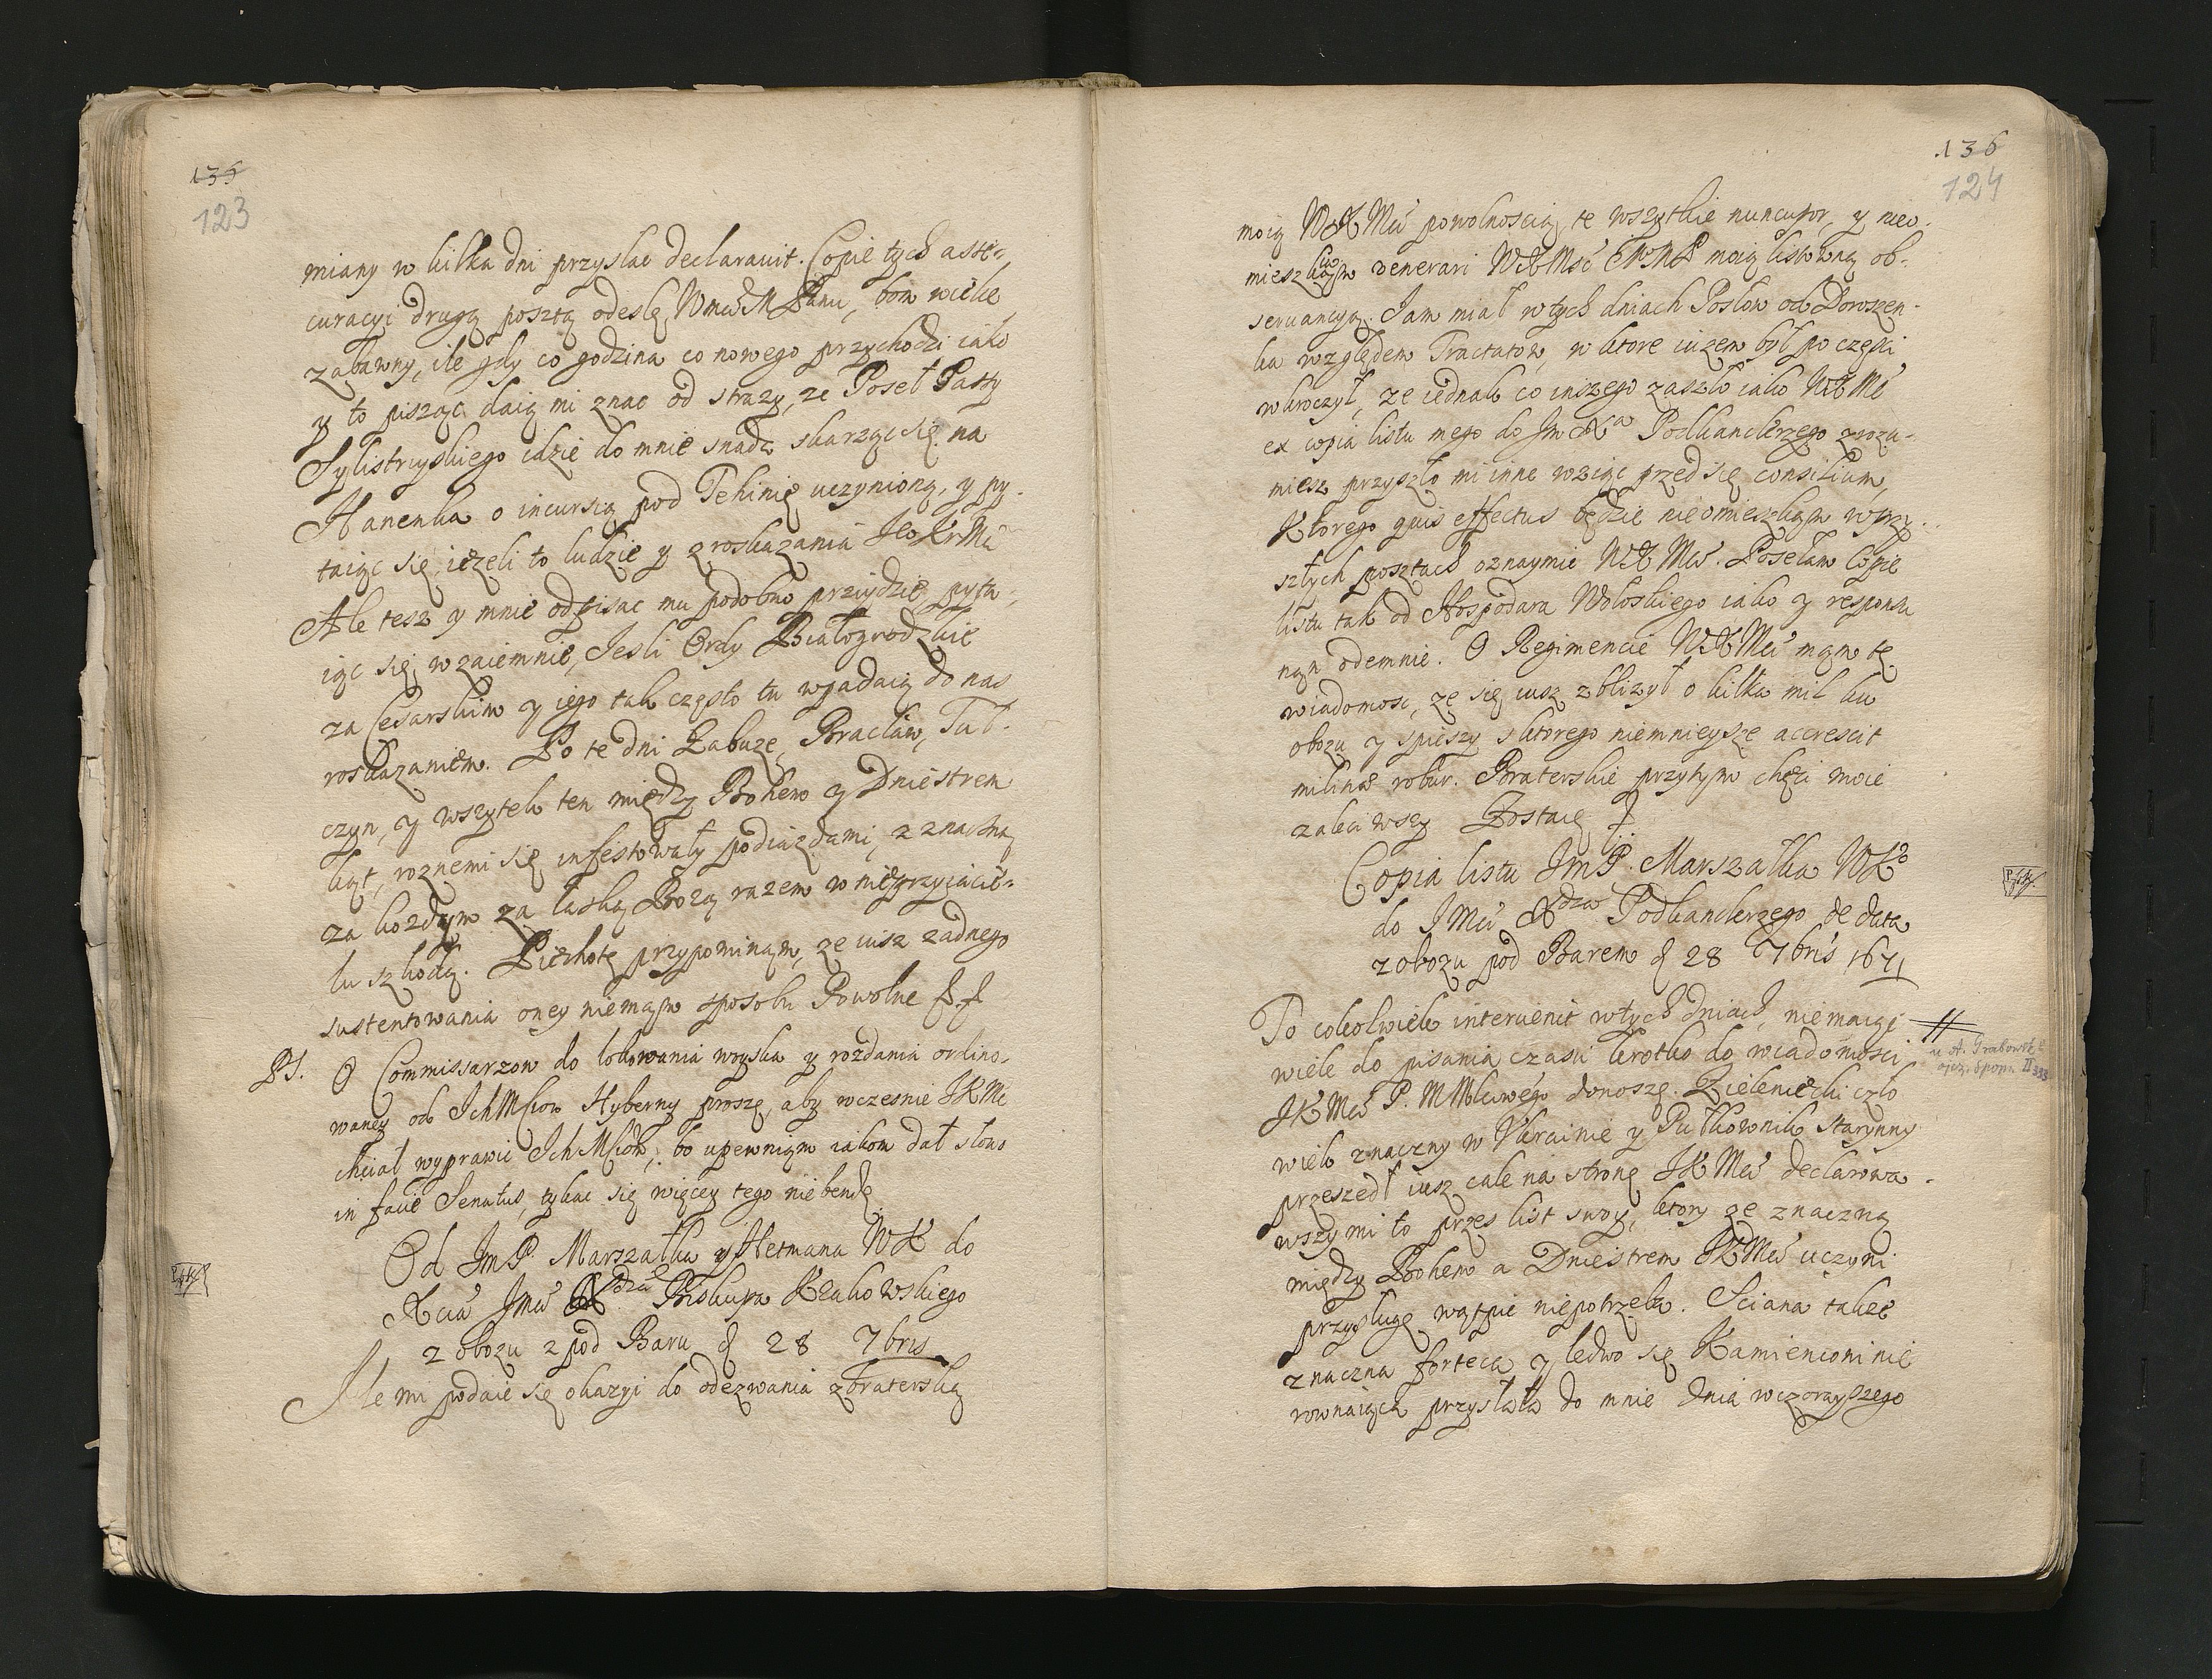 135
123
miany w kilka dni przysłac declarauit. Copie tych asse-
curacyi drugą posztą odeslę Wmć M Panu, bom wielce
zabawny, ile gdy co godzina co nowego przychodzi iako
y to pisząc daią mi znac od strazy, ze Poseł Paszy
Sylistryskiego idzie do mnie snadz skarząc się na
Hanenka o incursią pod Tehinię uczynioną, y py-
taiąc się, iezeli to ludzie y z roskazania Jeo Kr Mci
Ale tesz y mnie odpisac mu podobno przyidzie, pyta-
iąc się wzaiemnie, Jesli Ordy Białogrodzkie
za Cesarskim y iego tak często tu wpadaią do nas
roskazaniem. Po te dni Zabuze, Bracław, Tul-
czyn, y wszytek ten między Bohem y Dniestrem
kąt, roznemi się infestowały podiazdami, z znaczną
za kozdym za łaską Bozą razem w nieprzyiacie-
lu szkodą. Piechotę przypominam, ze iusz zadnego
sustentowania oney niemąm sposobu Powolne &. &
PS. O Commissarzow do lokowania woyska y rozdania ordino-
waney od IchMsciow Hyberny proszę, aby wczesnie JKMc
chciał wyprawic IchMsciow; bo upewniąm iakom dał słowo
in facie Senatus, tykac się więcey tego niebendę
Od JmP. Marszałka y Hetmana WK do
Xcia Jmci Xdza Biskupa Krakowskiego
z obozu z pod Baru d 28 7bris
Ile mi podaie się okazyi do odezwania z braterską
136
124
moią WXMci powolnoscią, te wszytkie nuncupor, y nieo-
mieszkiwąm venerari WXMsć MMP moią listowną ob-
seruancyą. Jam miał w tych dniach Posłow od Doroszen-
ka względem Tractatow, w ktore iuzem był po częsci
wkroczył, ze iednak co inszego zaszło iako WXMć
ex copia listu mego do Jm Xa Podkanclerzego zrozu-
miesz przyszło mi inne wziąc przed się consilium,
Ktorego quis effectus będzie nieomieszkąm w przy-
szłych posztach oznaymic WXMci. Posełam Copie
listu tak od Hospodara Wołoskiego iako y respons
nąn odemnie. O Regimencie WXMci mąm tę
wiadomosc, ze się iusz zblizył o kilka mil ku
obozu y spieszy z ktorego niemnieysze accrescit
militiae robur. Braterskie przytym chęci moie
zaleciwszy Zostaię &
Copia listu JmP. Marszałka WKo
do JMci Xdza Podkanclerzego de data
z obozu pod Barem d 28 7bris 1671
To cokolwiek interuenit w tych dniach, niemaiąc
wiele do pisania czasu krotko do wiadomosci
JKMci P. MMłciwego donoszę. Zieleniecki czło-
wiek znaczny w Ukrainie y Pułkownik starynny
przeszedł iusz cale na stronę JKMci declarowa-
wszy mi to przes list swoy, ktory ze znaczną
między Bohem a Dniestrem JKMci uczyni
przysługę wątpic niepotrzeba. Sciana takze
znaczna forteca y ledwo się Kamiencowi nie
rownaiąca przysłała do mnie dnia wczorayszego
u A. Grabowsk.
ojcz. Spom. II 333